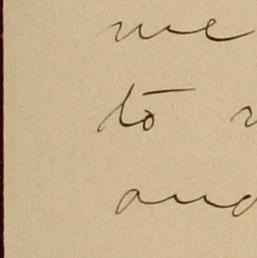 me
to
and